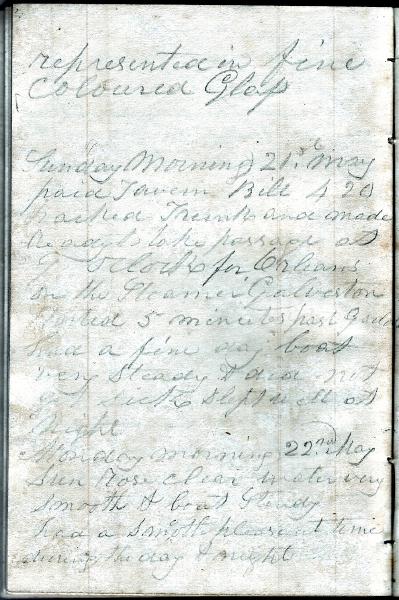 represented in fine
Coloured Glass
Sunday Morning 21.st May
paid Tavern Bill 4 20
packed Trunk and made
Ready to take passage at
9 oclock for Orleans
on the Steamer Galveston
Started 5 minutes past 9
had a fine day boat
very Steady & did not
get sick slept well at
Night
Monday morning 22nd May
Sun Rose clear water very
smooth & boat Steady
had a smoth pleasent time
during the day & night